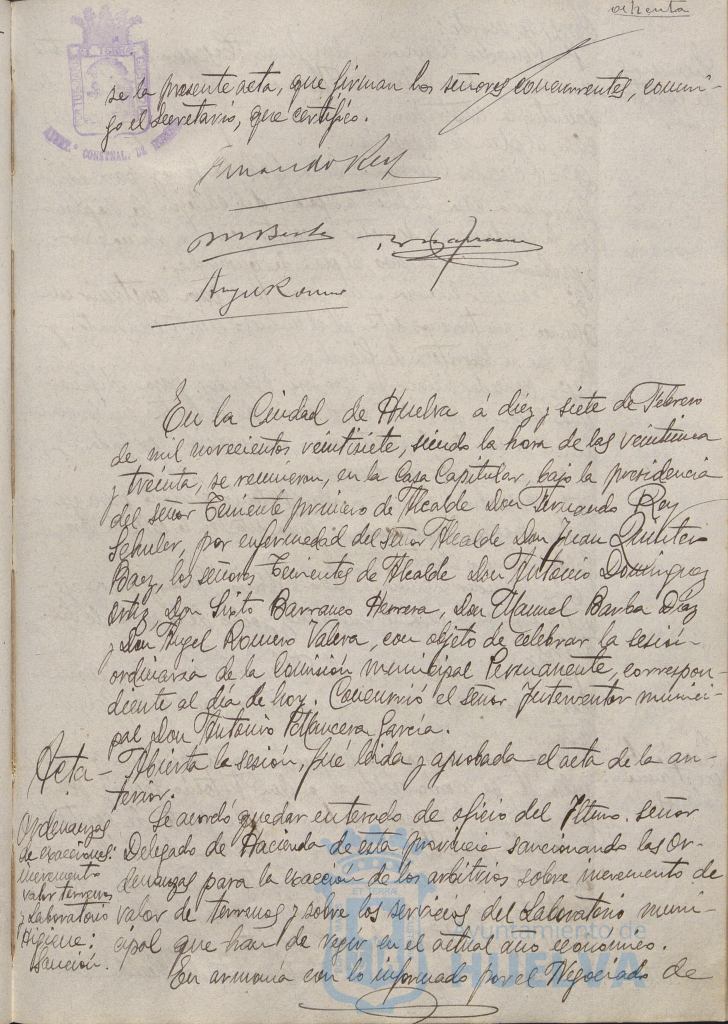 ochenta
se la presente acta, que firman los señores concurrentes, conmi-
go el secretario, que certifico.
Fernando Rey
M Barba
Angel Romero
En la Ciudad de Huelva á diez y siete de Febrero
de mil novecientos veintisiete, siendo la hora de las veintiuna
y treinta, se reunieron, en la Casa Capitular, bajo la presidencia
del señor Teniente primero de Alcalde Don Fernando Rey
Schuler, por enfermedad del señor Alcalde Don Juan Quintero
Baez, los señores Tenientes de Alcalde Don Antonio Dominguez
Ortiz Don Sixto Barranco Herrera, Don Manuel Barba Díaz
y Don Angel Romero Valera, con objeto de celebrar la sesión
ordinaria de la Comisión municipal Permanente, correspon-
diente al día de hoy. Concurrió el señor Interventor munici-
pal Don Antonio García.
Acta - Abierta la sesión, fué leida y aprobada el acta de la an-
terior.
Ordenanzas
de exacciones:
incremento
valor terrenos
y Laboratorio
Higiene:
sanción.
Se acordó quedar enterado de oficio del Iltmo. señor
Delegado de Hacienda de esta provincia sancionando las Or-
denanzas para la exacción de los arbitrios sobre incremento de
valor de terrenos y sobre los servicios del Laboratorio muni-
cipal que han de regir en el actual año economico.
En armonía con lo informado por el Negociado de
Ayuntamiento de
HUELVA